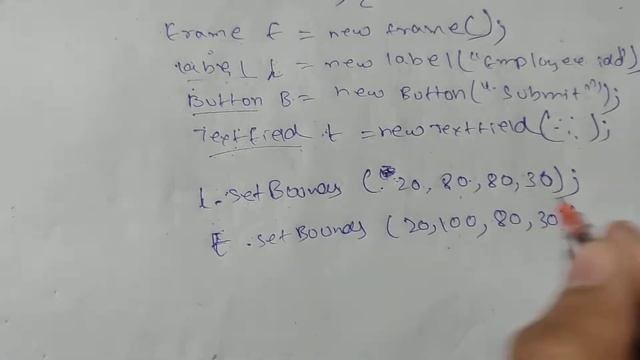 Frame f = new frame();
label l = new label("Employee id")
Button B = new Button("Submit");
Textfield t = new Textfield(...);
l.setBounds (20, 80, 80, 30);
t.setBounds (20, 100, 80, 30